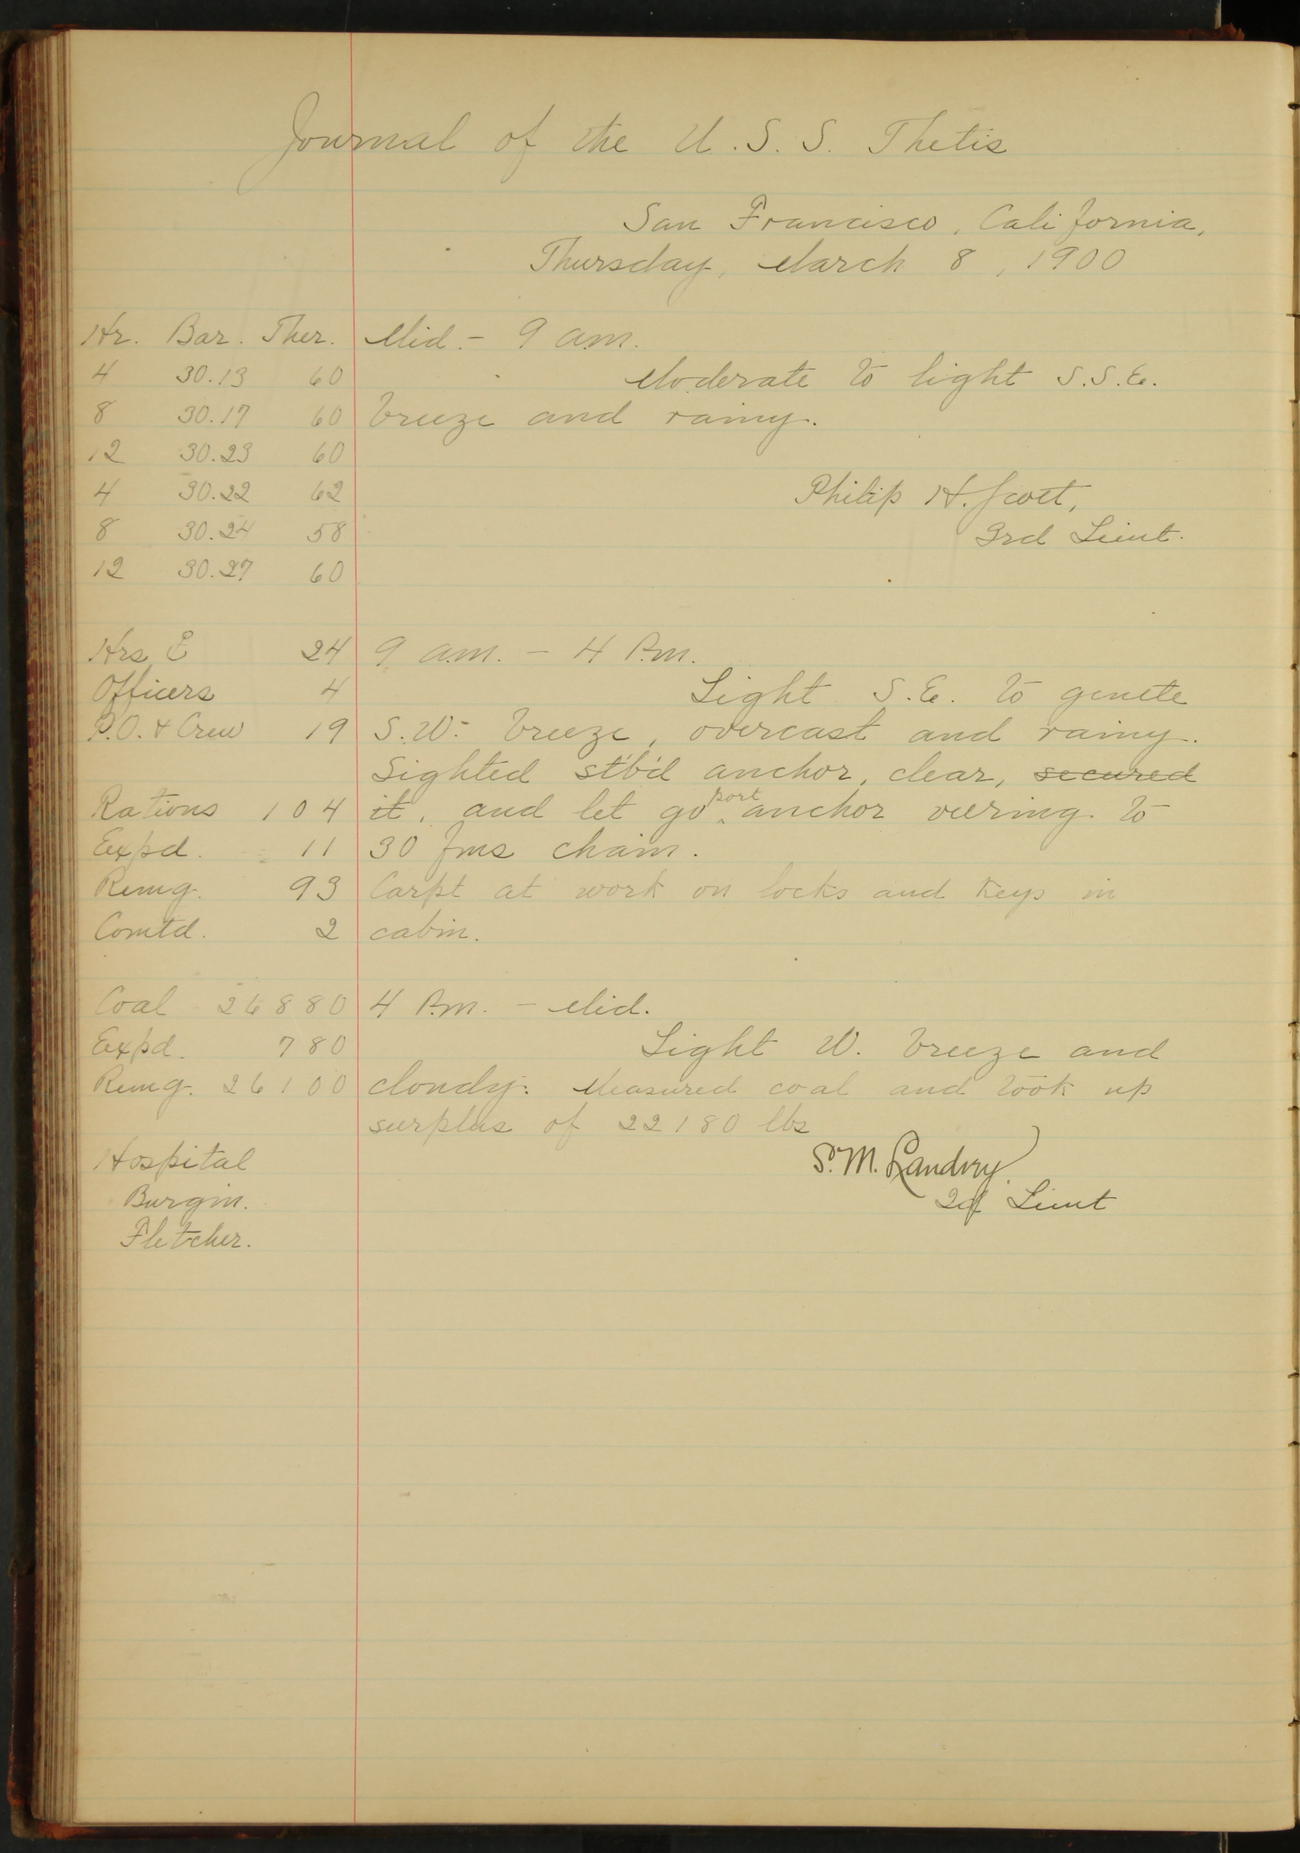 Journal of the U.S.S. Thetis
San Francisco, California,
Thursday, March 8, 1900
Hr. Bar. Ther. Mid. - 9 a.m.
4 30.13 60 Moderate to light S.S.E.
8 30.17 60 breeze and rainy.
12 30.23 60
4 30.22 62 Philip H. Scott,
8 30.24 58 3rd Lieut.
12 30.27 60
Hrs E 24 9 a.m. - 4 P.m.
Officers 4 Light S.E. to gentle
P.O. & Crew 19 S.W. breeze, overcast and rainy.
Sighted stb'd anchor, clear, secured
Rations 104 it, and let go port anchor veering to
Expd. 11 30 fms chain.
Remg. 93 Carpt at work on locks and keys in
Comtd. 2 cabin.
Coal 26880 4 P.m. - Mid.
Expd. 780 Light W. breeze and
Remg. 26100 cloudy. Measured coal and took up
surplus of 22180 lbs
Hospital S. M. Landry.
Burgin. 2d Lieut
Fletcher.